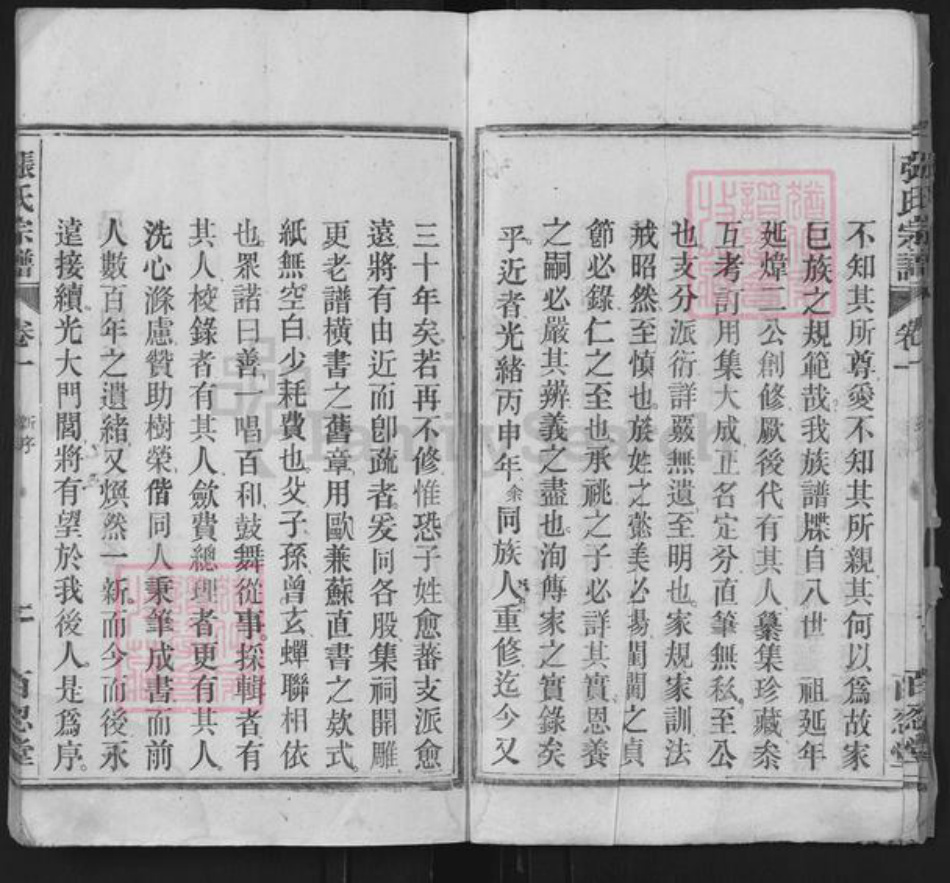 張氏宗譜 卷一
不知其所尊愛不知其所親其何以爲故家
巨族之規範哉我族譜牒自八世 祖延年
延煒二公創修厥後代有其人纂集珍藏叅
互考訂用集大成正名定分直筆無私至公
也支分派衍詳覈無遺至明也家規家訓法
戒昭然至慎也族姓之懿美必揚閨閫之貞
節必錄仁之至也承祧之子必詳其實恩養
之嗣必嚴其辨義之盡也洵傳家之實錄矣
乎近者光緒丙申年余同族人重修迄今又
三十年矣若再不修惟恐子姓愈蕃支派愈
遠將有由近而卽疏者爰同各股集祠開雕
更老譜橫書之舊章用歐兼蘇直書之欵式
紙無空白少耗費也父子孫曾玄蟬聯相依
也眾諾曰善一唱百和鼓舞從事採輯者有
其人校錄者有其人歛費總理者更有其人
洗心滌慮贊助樹榮偕同人秉筆成書而前
人數百年之遺緒又煥然一新而今而後永
遠接續光大門閭將有望於我後人是爲序
張氏宗譜 卷一 新序 二 百忍堂
FamilySearch